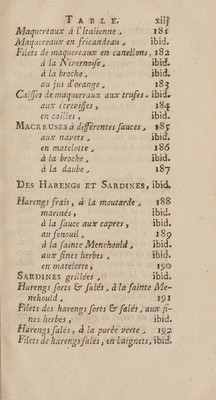 TABLE. xiij
Maquereaux à l'Italienne. 181
Maquereaux en fricandeau. ibid.
Filets de maquereaux en canellons, 182
à la Nivernoise, ibid.
à la broche, ibid.
au jus d'orange, 183
Caisses de maquereaux aux trufes. ibid.
aux écrevisses, 184
en cailles, ibid.
MACREUSES à différentes sauces, 185
aux navets, ibid.
en matelotte, 186
à la broche, ibid.
à la daube, 187
DES HARENGS ET SARDINES, ibid.
Harengs frais, à la moutarde, 188
marinés, ibid.
à la sauce aux capres, ibid.
au fenouil, 189
à la sainte Menehould, ibid.
aux fines herbes, ibid.
en matelotte, 190
SARDINES grillées, ibid.
Harengs sorts & salés, à la sainte Me-
nehould, 191
Filets des harengs sorts & salés, aux fi-
nes herbes, ibid.
Harengs salés, à la purée verte, 192
Filets de harengs salés, en baignets, ibid.